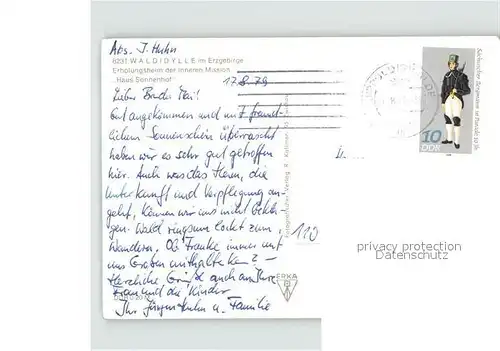 Abs. J. Huhn
8231 WALDIDYLLE im Erzgebirge
Erholungsheim der Inneren Mission
„Haus Sonnenhof"
17.8.79
Lieber Bruder
Gut angekommen und mit freund-
lichem Sonnenschein überrascht
haben wir es sehr gut getroffen
hier. Auch was das Heim, die
Unterkunft und Verpflegung an-
geht, können wir uns nicht bekla-
gen. Wald ringsum lockt zum
Wandern. Ob Franke immer mit
uns Graben mithalten kann? –
Herzliche Grüße auch an Ihre
Frau und die Kinder
Ihr Jürgen Huhn u. Familie
Fotografischer Verlag R.
110
ERKA
10
DDR
privacy protection
Datenschutz